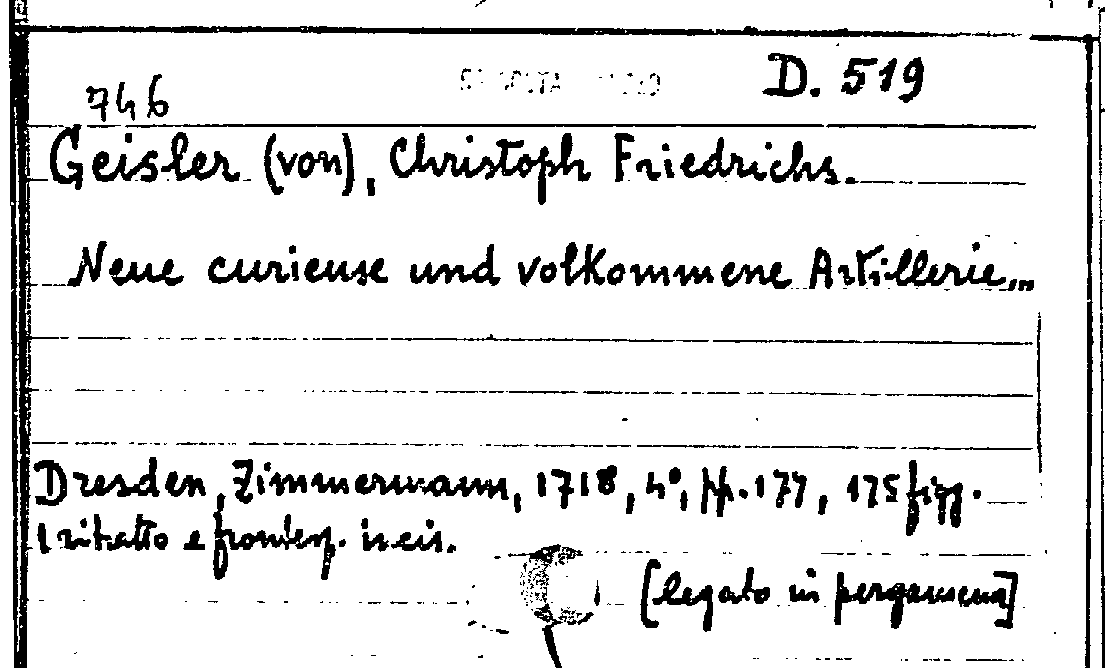 D. 519
746
Geisler (von), Christoph Friedrichs.
Neue curieuse und volkommene Artillerie...
Dresden, Zimmermann, 1718, 4°, pp. 177, 175 figg.
1 ritratto e frontesp. incis.
[legato in pergamena]